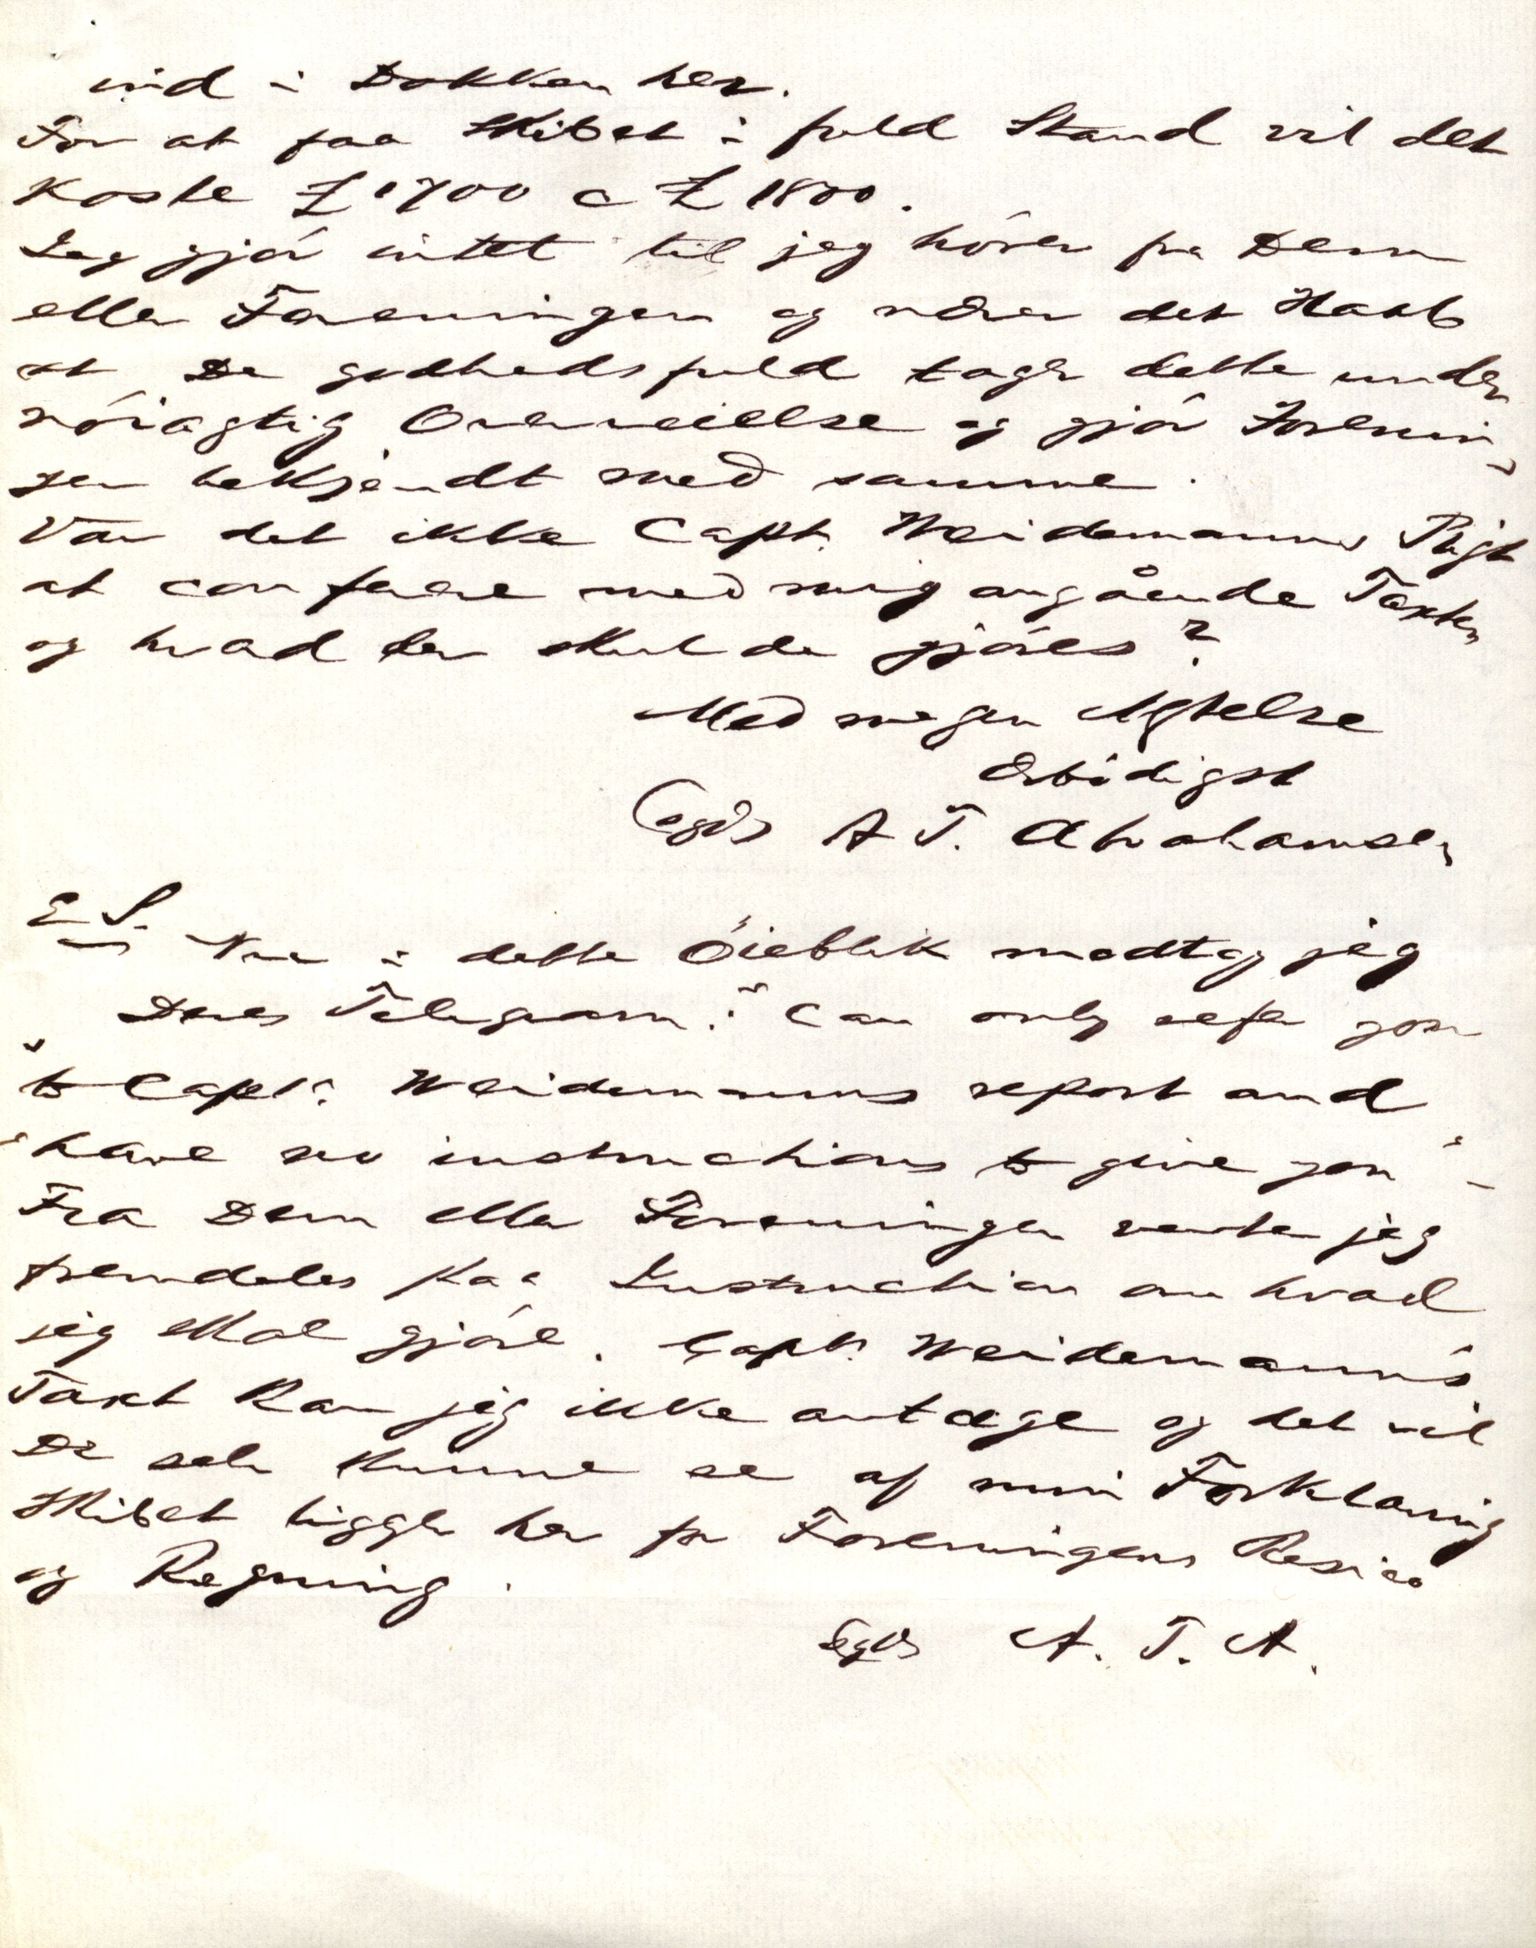 ind i Dokken her.
For at faa Skibet i fuld Stand vil det
koste £1700 a £1800.
Jeg gjør intet til jeg hører fra Dem
eller Foreningen og nærer det Haab
at De godhedsfuld tager dette under
nöiagtig Overveielse og gjør Forenin-
gen bekjendt med samme.
Var det ikke Capt. Weidemanns Pligt
at conferere med mig angående Taxten
og hvad der skulde gjøres?
Med megen Agtelse
Ærbødigst
(sgd) A T. Abrahamsen
E S. Nu i dette Øieblik modtog jeg
Deres Telegram: "Can only refer you
"to Capt. Weidemanns report and
"have no instructions to give you" -
Fra Dem eller Foreningen venter jeg
fremdeles paa Instruction om hvad
jeg skal gjøre. Capt. Weidemann's
Taxt kan jeg ikke antage og det vil
De selv kunne se af min Forklaring
Skibet ligger her for Foreningens Resico
og Regning.
sgd A. T. A.